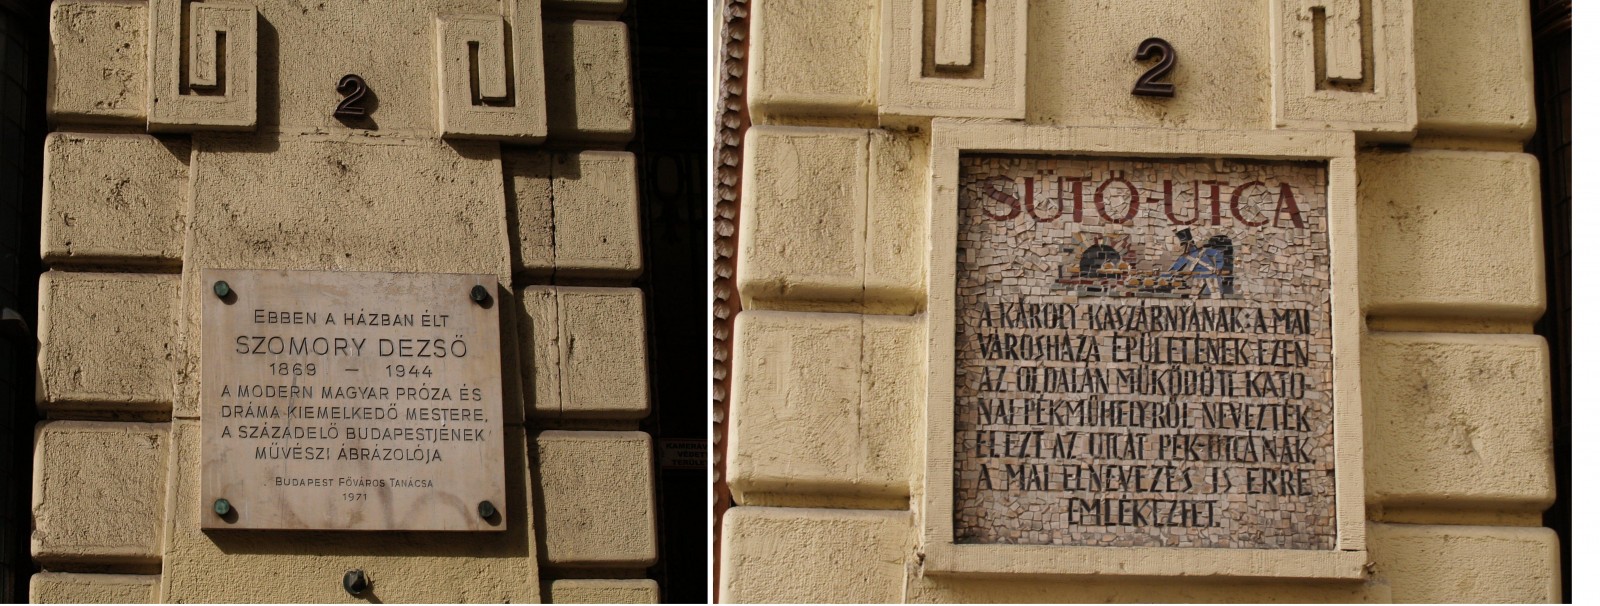 2
EBBEN A HÁZBAN ÉLT
SZOMORY DEZSŐ
1869 — 1944
A MODERN MAGYAR PRÓZA ÉS
DRÁMA KIEMELKEDŐ MESTERE,
A SZÁZADELŐ BUDAPESTJÉNEK
MŰVÉSZI ÁBRÁZOLÓJA
BUDAPEST FŐVÁROS TANÁCSA
1971
2
SÜTŐ-UTCA
A KÁROLY-KASZÁRNYÁNAK: A MAI
VÁROSHÁZA ÉPÜLETÉNEK EZEN
AZ OLDALÁN MŰKÖDÖTT KATO-
NAI PÉKMŰHELYRŐL NEVEZTÉK
EL EZT AZ UTCÁT PÉK-UTCÁNAK.
A MAI ELNEVEZÉS IS ERRE
EMLÉKEZTET.